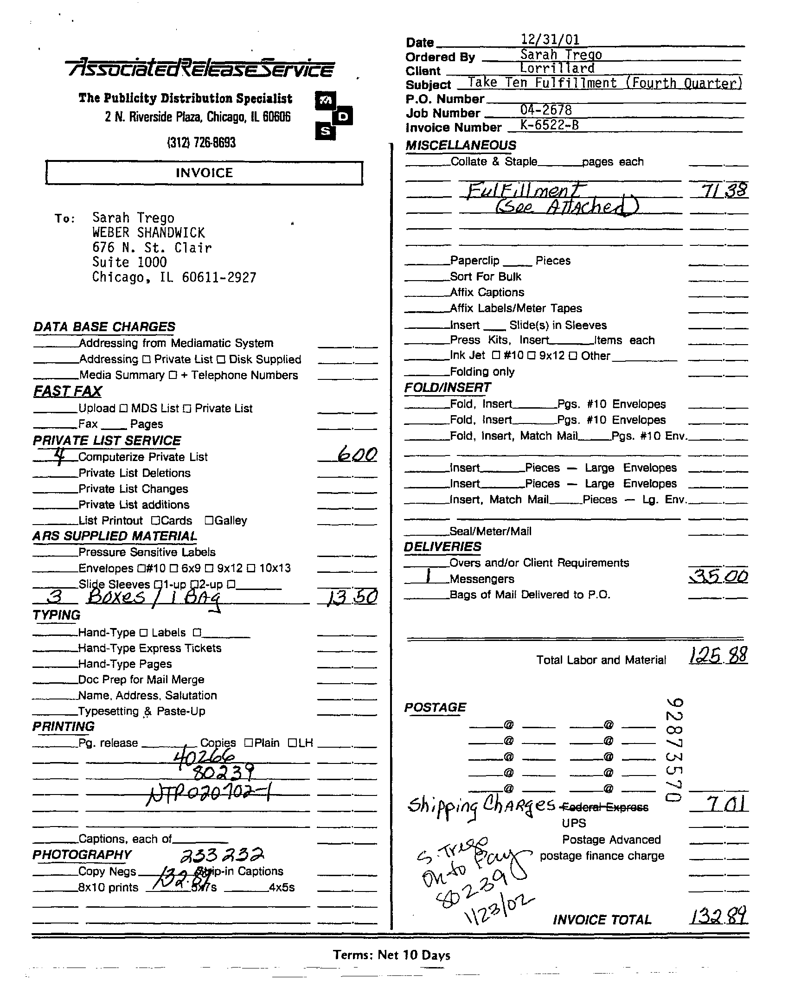 AssociatedReleaseService
The Publicity Distribution Specialist
2 N. Riverside Plaza, Chicago, IL 60606
(312) 726-8693
A
R
D
S
INVOICE
To: Sarah Trego
WEBER SHANDWICK
676 N. St. Clair
Suite 1000
Chicago, IL 60611-2927
DATA BASE CHARGES
Addressing from Mediamatic System
Addressing □ Private List □ Disk Supplied
Media Summary □ + Telephone Numbers
FAST FAX
Upload □ MDS List □ Private List
Fax ____ Pages
PRIVATE LIST SERVICE
4 Computerize Private List 6 00
Private List Deletions
Private List Changes
Private List additions
List Printout □Cards □Galley
ARS SUPPLIED MATERIAL
Pressure Sensitive Labels
Envelopes □#10 □ 6x9 □ 9x12 □ 10x13
Slide Sleeves □1-up □2-up □
3 Boxes / 1 BAg 13.50
TYPING
Hand-Type □ Labels □
Hand-Type Express Tickets
Hand-Type Pages
Doc Prep for Mail Merge
Name, Address, Salutation
Typesetting & Paste-Up
PRINTING
Pg. release ____ Copies □Plain □LH
40266
80239
NTP020702-1
Captions, each of
PHOTOGRAPHY 233232
Copy Negs ____ Strip-in Captions
132.89
8x10 prints ____ 5x7s ____ 4x5s
Date 12/31/01
Ordered By Sarah Trego
Client Lorrillard
Subject Take Ten Fulfillment (Fourth Quarter)
P.O. Number
Job Number 04-2678
Invoice Number K-6522-B
MISCELLANEOUS
Collate & Staple ____ pages each
Fulfillment 71.38
(See Attached)
Paperclip ____ Pieces
Sort For Bulk
Affix Captions
Affix Labels/Meter Tapes
Insert ____ Slide(s) in Sleeves
Press Kits, Insert ____ Items each
Ink Jet □ #10 □ 9x12 □ Other
Folding only
FOLD/INSERT
Fold, Insert ____ Pgs. #10 Envelopes
Fold, Insert ____ Pgs. #10 Envelopes
Fold, Insert, Match Mail ____ Pgs. #10 Env.
Insert ____ Pieces — Large Envelopes
Insert ____ Pieces — Large Envelopes
Insert, Match Mail ____ Pieces — Lg. Env.
Seal/Meter/Mail
DELIVERIES
Overs and/or Client Requirements
1 Messengers 35.00
Bags of Mail Delivered to P.O.
Total Labor and Material 125.88
POSTAGE
@ ____ @
@ ____ @
@ ____ @
@ ____ @
@ ____ @
92873570
Shipping Charges Federal Express 7.01
UPS
Postage Advanced
postage finance charge
S. Trego
On to Pay
80239
1/23/02
INVOICE TOTAL 132.89
Terms: Net 10 Days